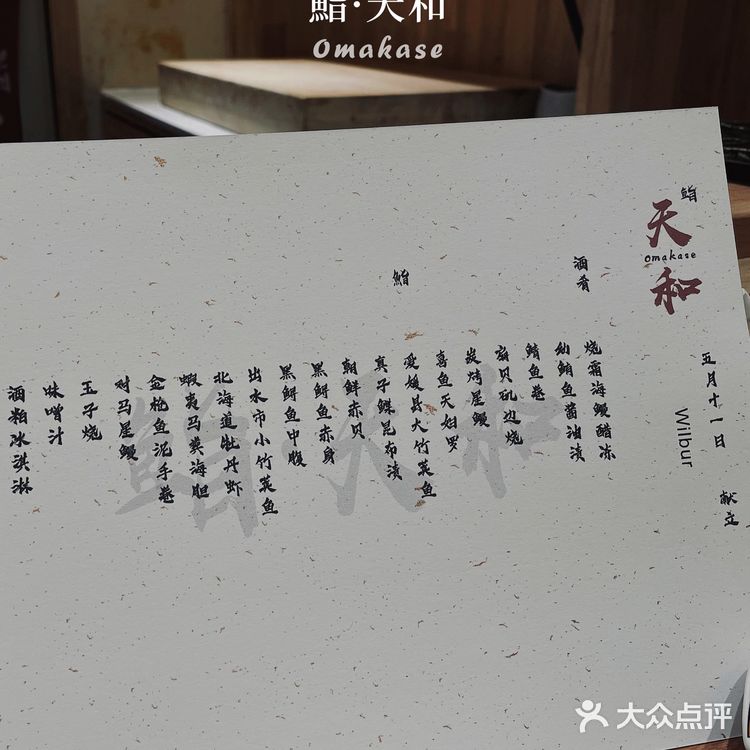 鮨·天和
Omakase
鮨
天
Omakase
和
五月十一日
Wilbur
献立
酒肴
烧霜海鳗醋冻
幼鲔鱼酱油渍
鲭鱼卷
扇贝矶边烧
炭烤星鳗
喜鱼天妇罗
鮨
爱媛县大竹荚鱼
真子鲽昆布渍
朝鲜赤贝
黑鲟鱼赤身
黑鲟鱼中腹
出水市小竹荚鱼
北海道牡丹虾
虾夷马粪海胆
金枪鱼泥手卷
对马星鳗
玉子烧
味噌汁
酒粕冰淇淋
鮨天和
大众点评